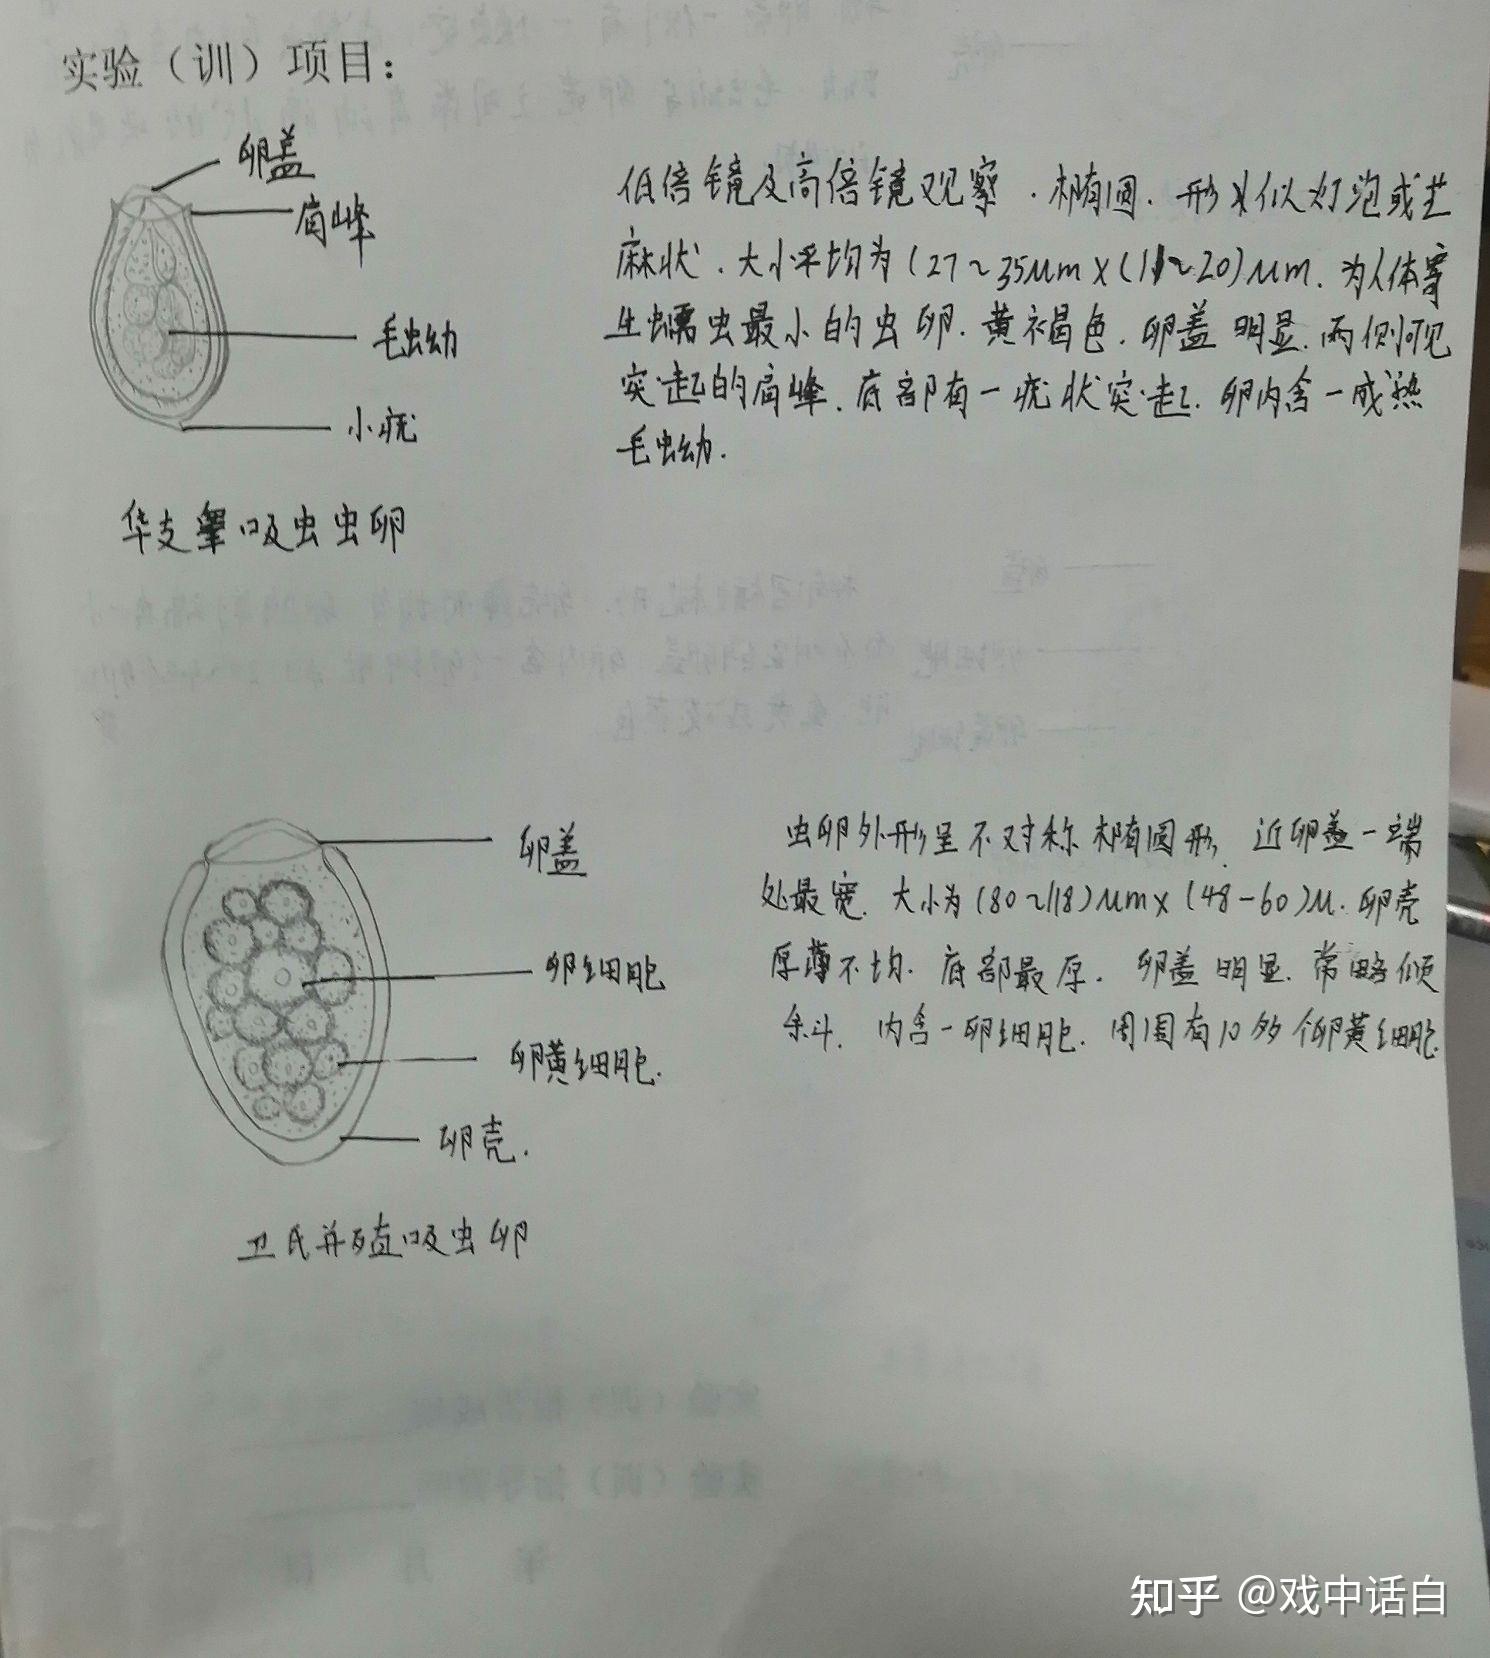 实验（训）项目：
卵盖
肩峰
毛虫幼
小疣
华支睾吸虫虫卵
低倍镜及高倍镜观察．椭圆．形状似灯泡或芝
麻状．大小平均为(27～35μm×(11～20)μm．为人体寄
生蠕虫最小的虫卵．黄褐色．卵盖明显．两侧可见
突起的肩峰．底部有一疣状突起．卵内含一成熟
毛虫幼．
卵盖
卵细胞
卵黄细胞．
卵壳．
卫氏并殖吸虫卵
虫卵外形呈不对称椭圆形，近卵盖一端
处最宽．大小为(80～118)μm×(48-60)μ．卵壳
厚薄不均．底部最厚．卵盖明显．常略倾
斜．内含一卵细胞．周围有10多个卵黄细胞．
知乎 @戏中话白